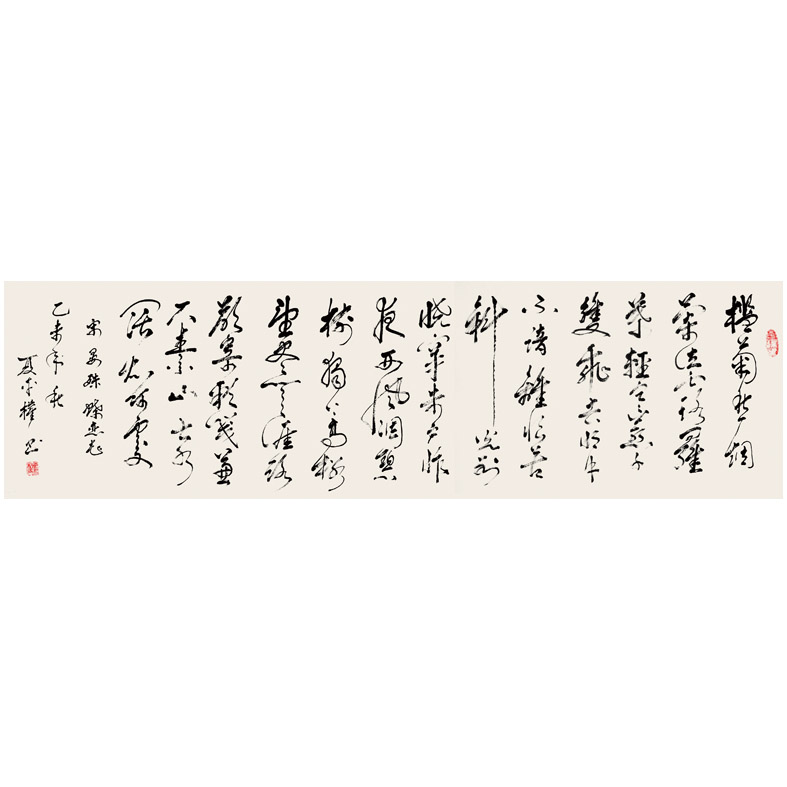 檻菊愁烟
蘭泣露羅
幕輕寒燕子
雙飛去明月
不諳離恨苦
斜光到
曉穿朱户昨
夜西風凋碧
樹獨上高樓
望盡天涯路
欲寄彩箋兼
尺素山長水
闊知何處
宋晏殊蝶恋花
乙未年秋
夏權書